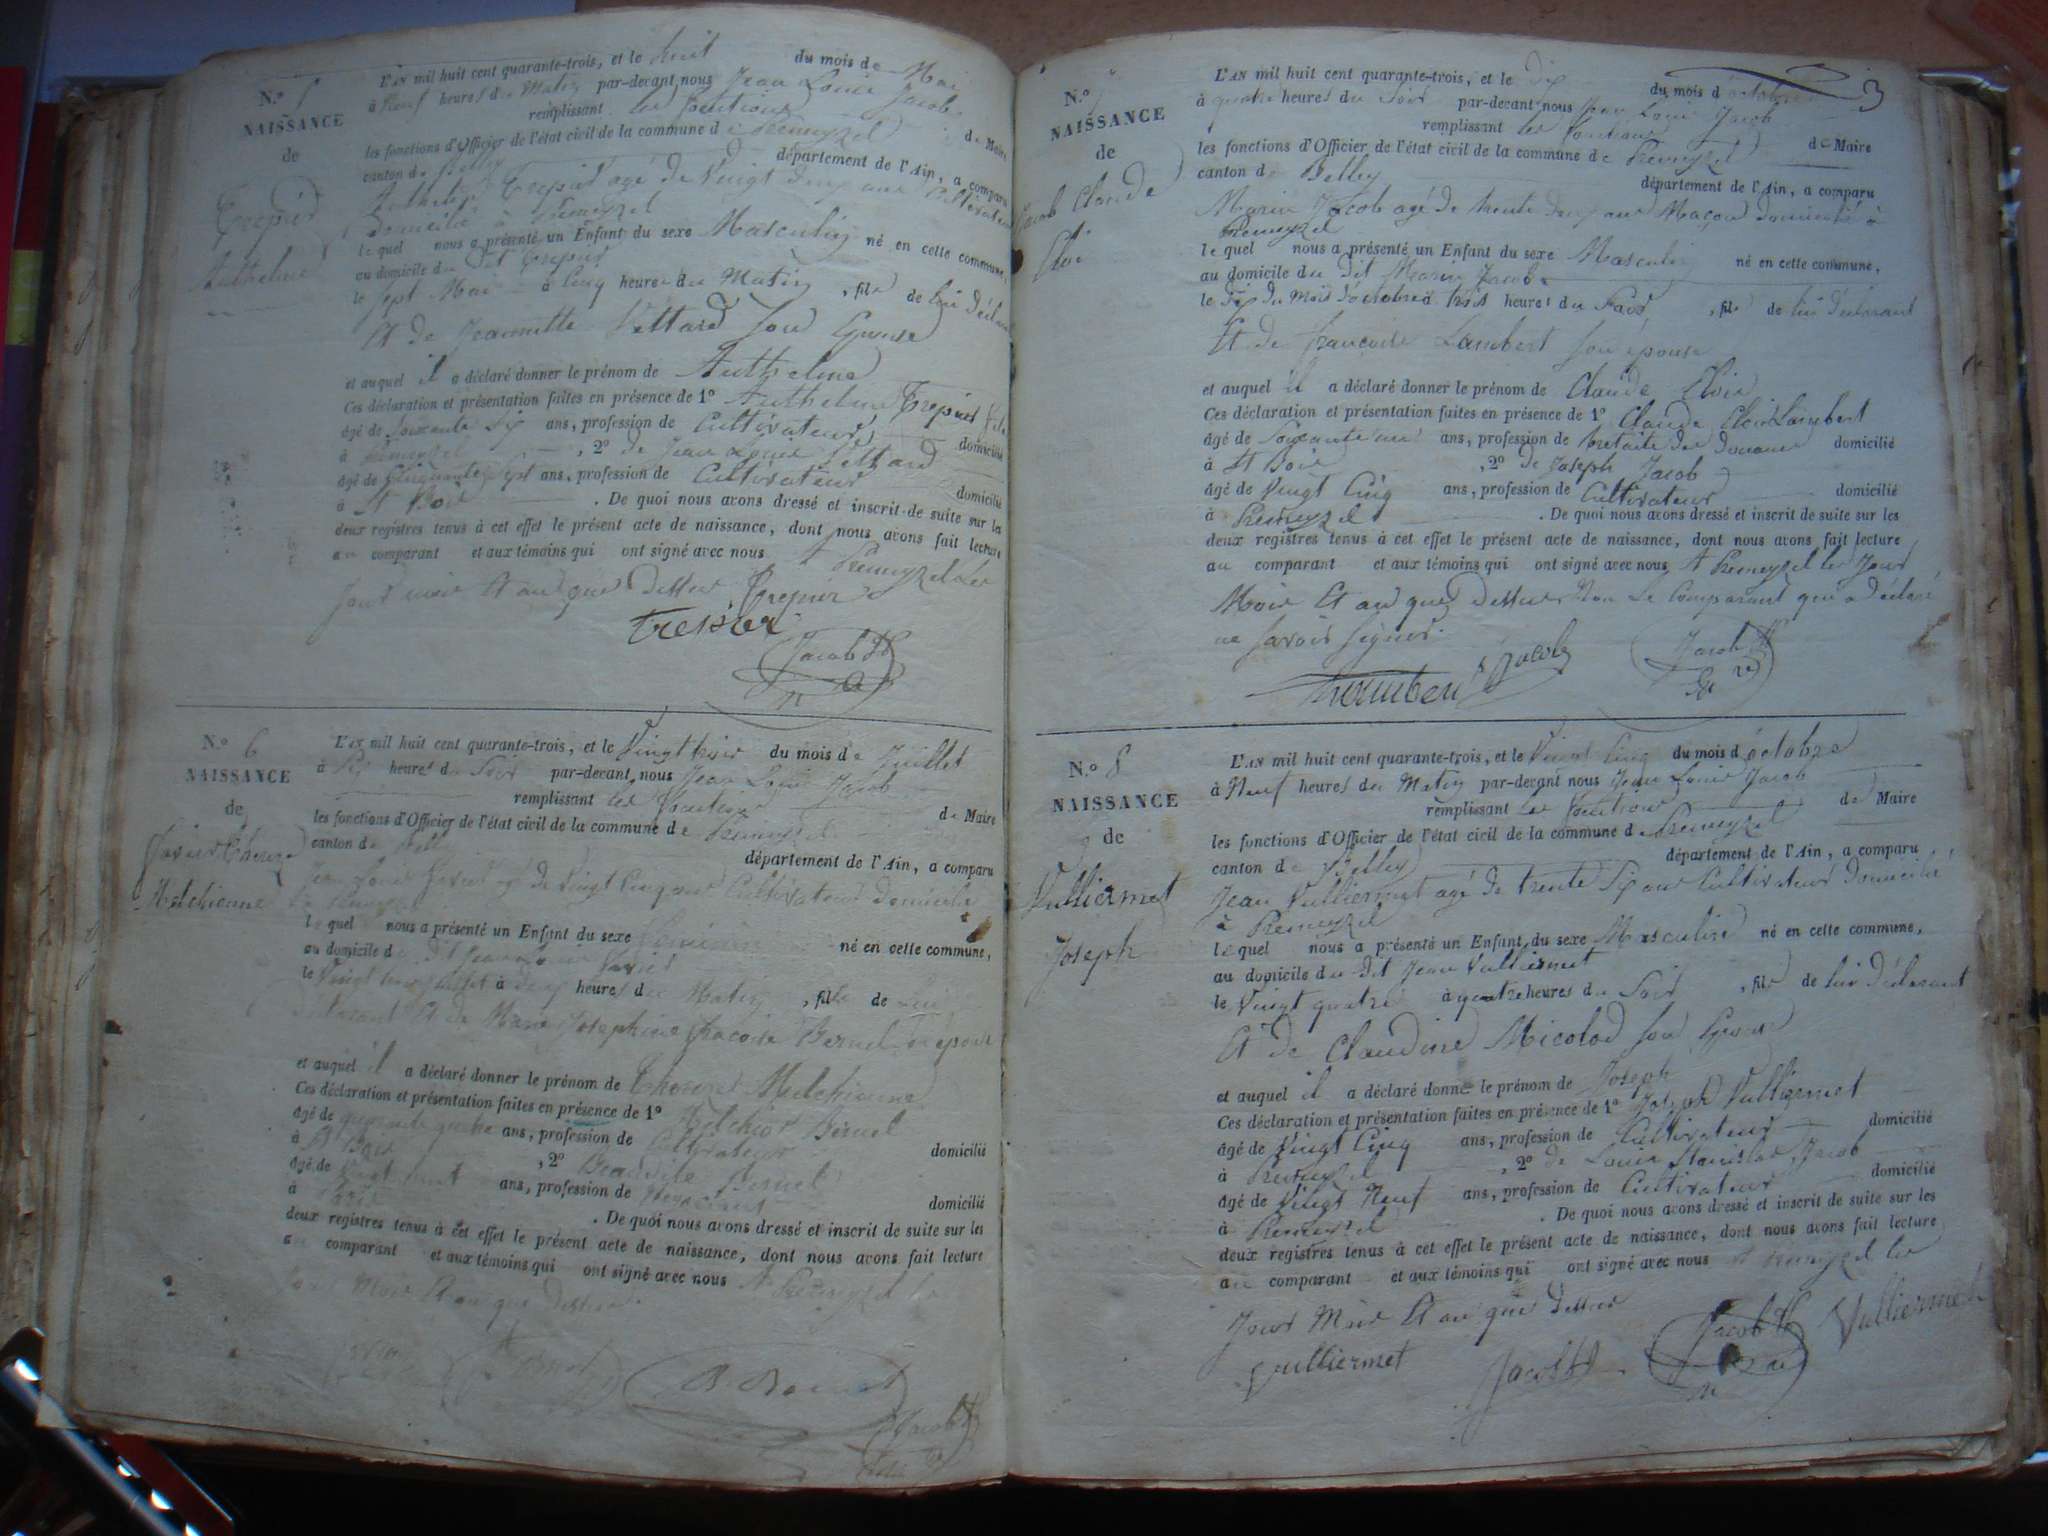 N.º 5
NAISSANCE
de
Trepier
Anthelme
L'AN mil huit cent quarante-trois, et le huit du mois de Mai
à Neuf heures du Matin par-devant nous Jean Louis Jacob
remplissant les fonctions de Maire
les fonctions d'Officier de l'état civil de la commune de Premeyzel
canton de Belley département de l'Ain, a comparu
Anthelme Trepier agé de Vingt deux ans Cultivateur
domicilié à Premeyzel
lequel nous a présenté un Enfant du sexe Masculin né en cette commune,
au domicile du dit Trepier
le sept Mai à Cinq heures du Matin, fils de lui déclarant
Et de Jeannette Vettard son Epouse
et auquel il a déclaré donner le prénom de Anthelme
Ces déclaration et présentation faites en présence de 1º Anthelme Trepier
âgé de Soixante Six ans, profession de Cultivateur domicilié
à Premeyzel, 2º de Jean Louis Vettard
âgé de Cinquante Sept ans, profession de Cultivateur domicilié
à St Bois. De quoi nous avons dressé et inscrit de suite sur les
deux registres tenus à cet effet le présent acte de naissance, dont nous avons fait lecture
au comparant et aux témoins qui ont signé avec nous A Premeyzel les
jour mois Et an que dessus Trepier
Trepier
Jacob
N.º 6
NAISSANCE
de
Melchionne
L'AN mil huit cent quarante-trois, et le Vingt trois du mois de Juillet
à Six heures du Soir par-devant nous Jean Louis Jacob
remplissant les fonctions de Maire
les fonctions d'Officier de l'état civil de la commune de Premeyzel
canton de Belley département de l'Ain, a comparu
Jean Louis agé de Vingt Cinq ans Cultivateur domicilié
à Premeyzel
lequel nous a présenté un Enfant du sexe Feminin né en cette commune,
au domicile du dit Jean Louis
le Vingt trois Juillet à deux heures du Matin, fille de Lui
déclarant Et de Marie Josephine Bernel son épouse
et auquel il a déclaré donner le prénom de Melchionne
Ces déclaration et présentation faites en présence de 1º Melchior Bernel
âgé de quarante quatre ans, profession de Cultivateur domicilié
à St Bois, 2º Bernel
âgé de Vingt huit ans, profession de domicilié
à Paris. De quoi nous avons dressé et inscrit de suite sur les
deux registres tenus à cet effet le présent acte de naissance, dont nous avons fait lecture
au comparant et aux témoins qui ont signé avec nous A Premeyzel les
jour Mois Et an que dessus
Jacob
N.º 7
NAISSANCE
de
Jacob Claude
Eloi
L'AN mil huit cent quarante-trois, et le dix du mois d'octobre
à quatre heures du Soir par-devant nous Jean Louis Jacob
remplissant les fonctions de Maire
les fonctions d'Officier de l'état civil de la commune de Premeyzel
canton de Belley département de l'Ain, a comparu
Marin Jacob agé de trente deux ans Maçon domicilié à
Premeyzel
lequel nous a présenté un Enfant du sexe Masculin né en cette commune,
au domicile du dit Marin Jacob
le dix du mois d'octobre à trois heures du Soir, fils de lui déclarant
Et de françoise Lambert son épouse
et auquel il a déclaré donner le prénom de Claude Eloi
Ces déclaration et présentation faites en présence de 1º Claude Eloi Lambert
âgé de Soixante un ans, profession de Retraite des douane domicilié
à St Bois, 2º de Joseph Jacob
âgé de Vingt Cinq ans, profession de Cultivateur domicilié
à Premeyzel. De quoi nous avons dressé et inscrit de suite sur les
deux registres tenus à cet effet le présent acte de naissance, dont nous avons fait lecture
au comparant et aux témoins qui ont signé avec nous A Premeyzel les Jour
Mois Et an que dessus Non Le Comparant qui a déclaré
ne savoir signer.
Jacob
Jacob
N.º 8
NAISSANCE
de
Vulliermet
Joseph
L'AN mil huit cent quarante-trois, et le Vingt Cinq du mois d'octobre
à Neuf heures du Matin par-devant nous Jean Louis Jacob
remplissant les fonctions de Maire
les fonctions d'Officier de l'état civil de la commune de Premeyzel
canton de Belley département de l'Ain, a comparu
Jean Vulliermet agé de trente Six ans Cultivateur domicilié
à Premeyzel
lequel nous a présenté un Enfant du sexe Masculin né en cette commune,
au domicile du dit Jean Vulliermet
le Vingt quatre à quatre heures du Soir, fils de lui déclarant
Et de Claudine Micolod son Epouse
et auquel il a déclaré donner le prénom de Joseph
Ces déclaration et présentation faites en présence de 1º Joseph Vulliermet
âgé de Vingt Cinq ans, profession de Cultivateur domicilié
à Premeyzel, 2º de Louis Stanislas Jacob
âgé de Vingt Neuf ans, profession de Cultivateur domicilié
à Premeyzel. De quoi nous avons dressé et inscrit de suite sur les
deux registres tenus à cet effet le présent acte de naissance, dont nous avons fait lecture
au comparant et aux témoins qui ont signé avec nous A Premeyzel les
Jour Mois Et an que dessus
Vulliermet Jacob Jacob Vulliermet